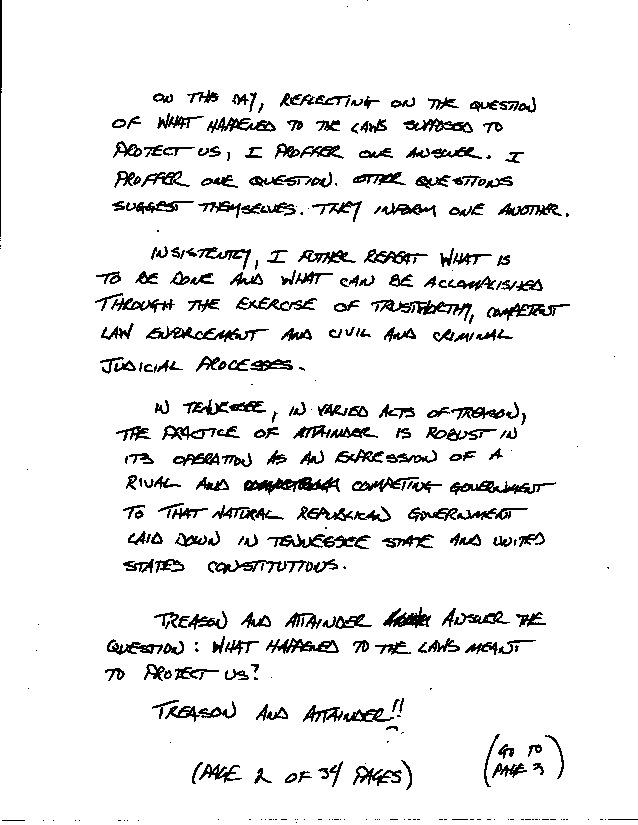 ON THIS DAY, REFLECTING ON THE QUESTION
OF WHAT HAPPENED TO THE LAWS SUPPOSED TO
PROTECT US, I PROFFER ONE ANSWER. I
PROFFER ONE QUESTION. OTHER QUESTIONS
SUGGEST THEMSELVES. THEY INFORM ONE ANOTHER.
INSISTENTLY, I FUTHER REPEAT WHAT IS
TO BE DONE AND WHAT CAN BE ACCOMPLISHED
THROUGH THE EXERCISE OF TRUSTWORTHY, COMPETENT
LAW ENFORCEMENT AND CIVIL AND CRIMINAL
JUDICIAL PROCESSES.
IN TENNESSEE, IN VARIED ACTS OF TREASON,
THE PRACTICE OF ATTAINDER IS ROBUST IN
ITS OPERATION AS AN EXPRESSION OF A
RIVAL AND COMPETING GOVERNMENT
TO THAT NATURAL REPUBLICAN GOVERNMENT
LAID DOWN IN TENNESSEE STATE AND UNITED
STATES CONSTITUTIONS.
TREASON AND ATTAINDER ANSWER THE
QUESTION: WHAT HAPPENED TO THE LAWS MEANT
TO PROTECT US?
TREASON AND ATTAINDER!!
(PAGE 2 OF 34 PAGES)
(GO TO
PAGE 3)